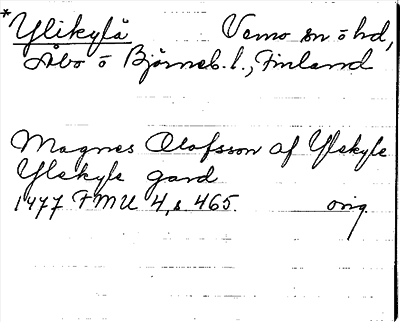 *Ylikylä Vemo sn o hd,
Åbo o Björneb. l., Finland
Magnes Olafsson af Ylskyle
Ylskyle gard
1477 FMU 4, s. 465. orig.